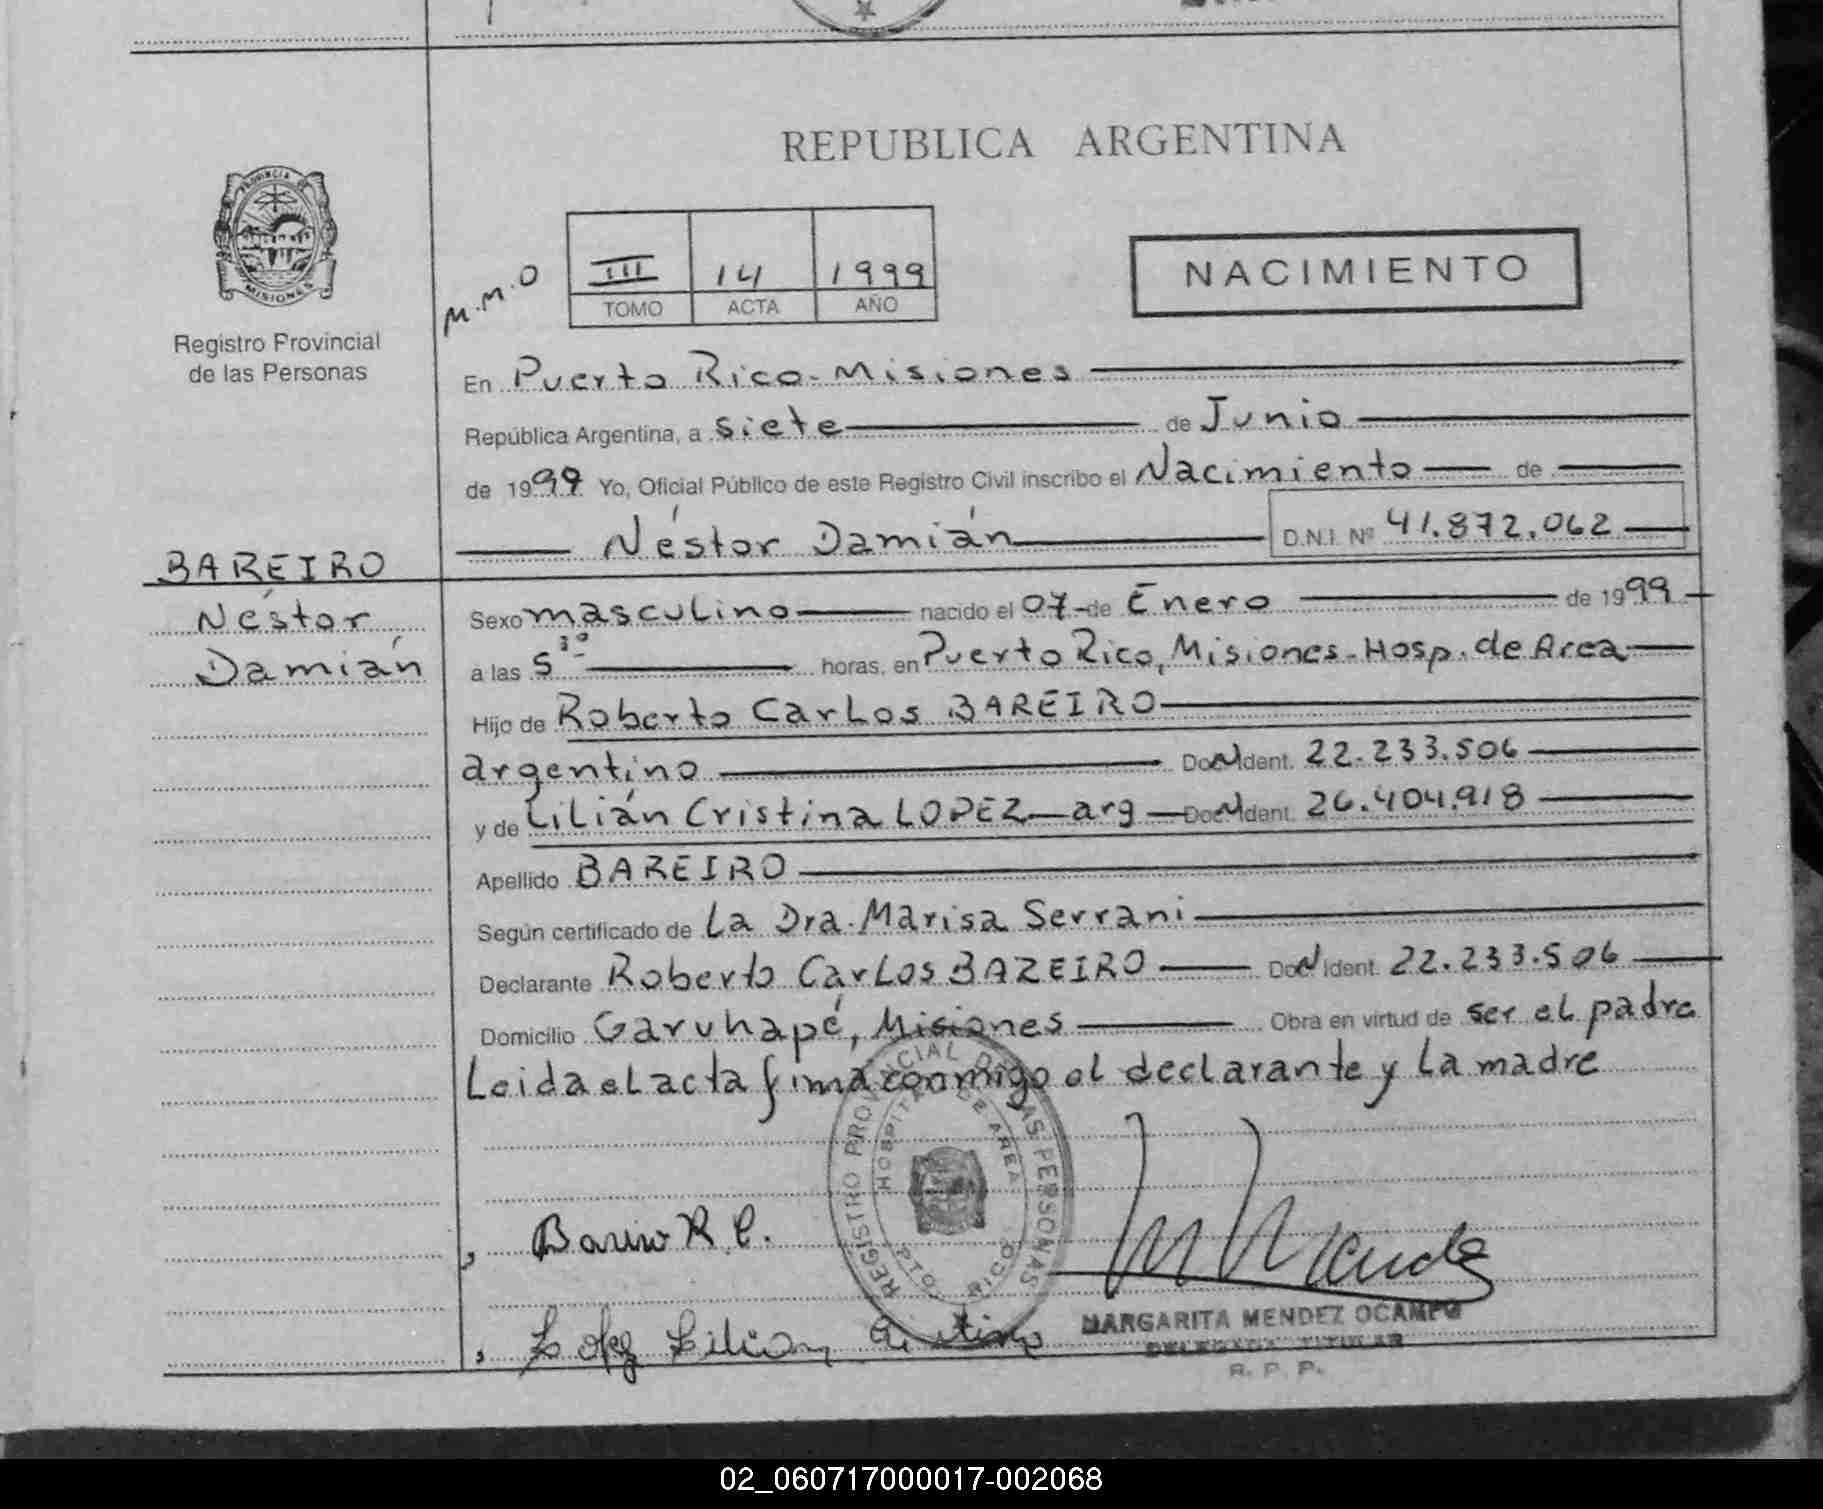 REPUBLICA ARGENTINA
PROVINCIA DE
MISIONES
Registro Provincial
de las Personas
M.M.O
III 14 1999
TOMO ACTA AÑO
NACIMIENTO
En Puerto Rico-Misiones
República Argentina, a siete de Junio
de 1999 Yo, Oficial Público de este Registro Civil inscribo el Nacimiento de
Néstor Damián D.N.I. Nº 41.872.062
BAREIRO
Néstor
Damián
Sexo masculino nacido el 07 de Enero de 1999
a las 5 30 horas, en Puerto Rico, Misiones-Hosp. de Area
Hijo de Roberto Carlos BAREIRO
argentino Doc. Ident. 22.233.506
y de Lilián Cristina LOPEZ-arg Doc. Ident. 26.404.918
Apellido BAREIRO
Según certificado de La Dra. Marisa Serrani
Declarante Roberto Carlos BAZEIRO Doc. Ident. 22.233.506
Domicilio Garuhapé, Misiones Obra en virtud de ser el padre
Leida el acta firma conmigo el declarante y la madre
REGISTRO PROVINCIAL DE LAS PERSONAS
HOSPITAL DE AREA
PTO. RICO
Bareiro R. C.
Lopez Lilian Cristina
MARGARITA MENDEZ OCAMPO
DELEGADA TITULAR
R. P. P.
02_060717000017-002068